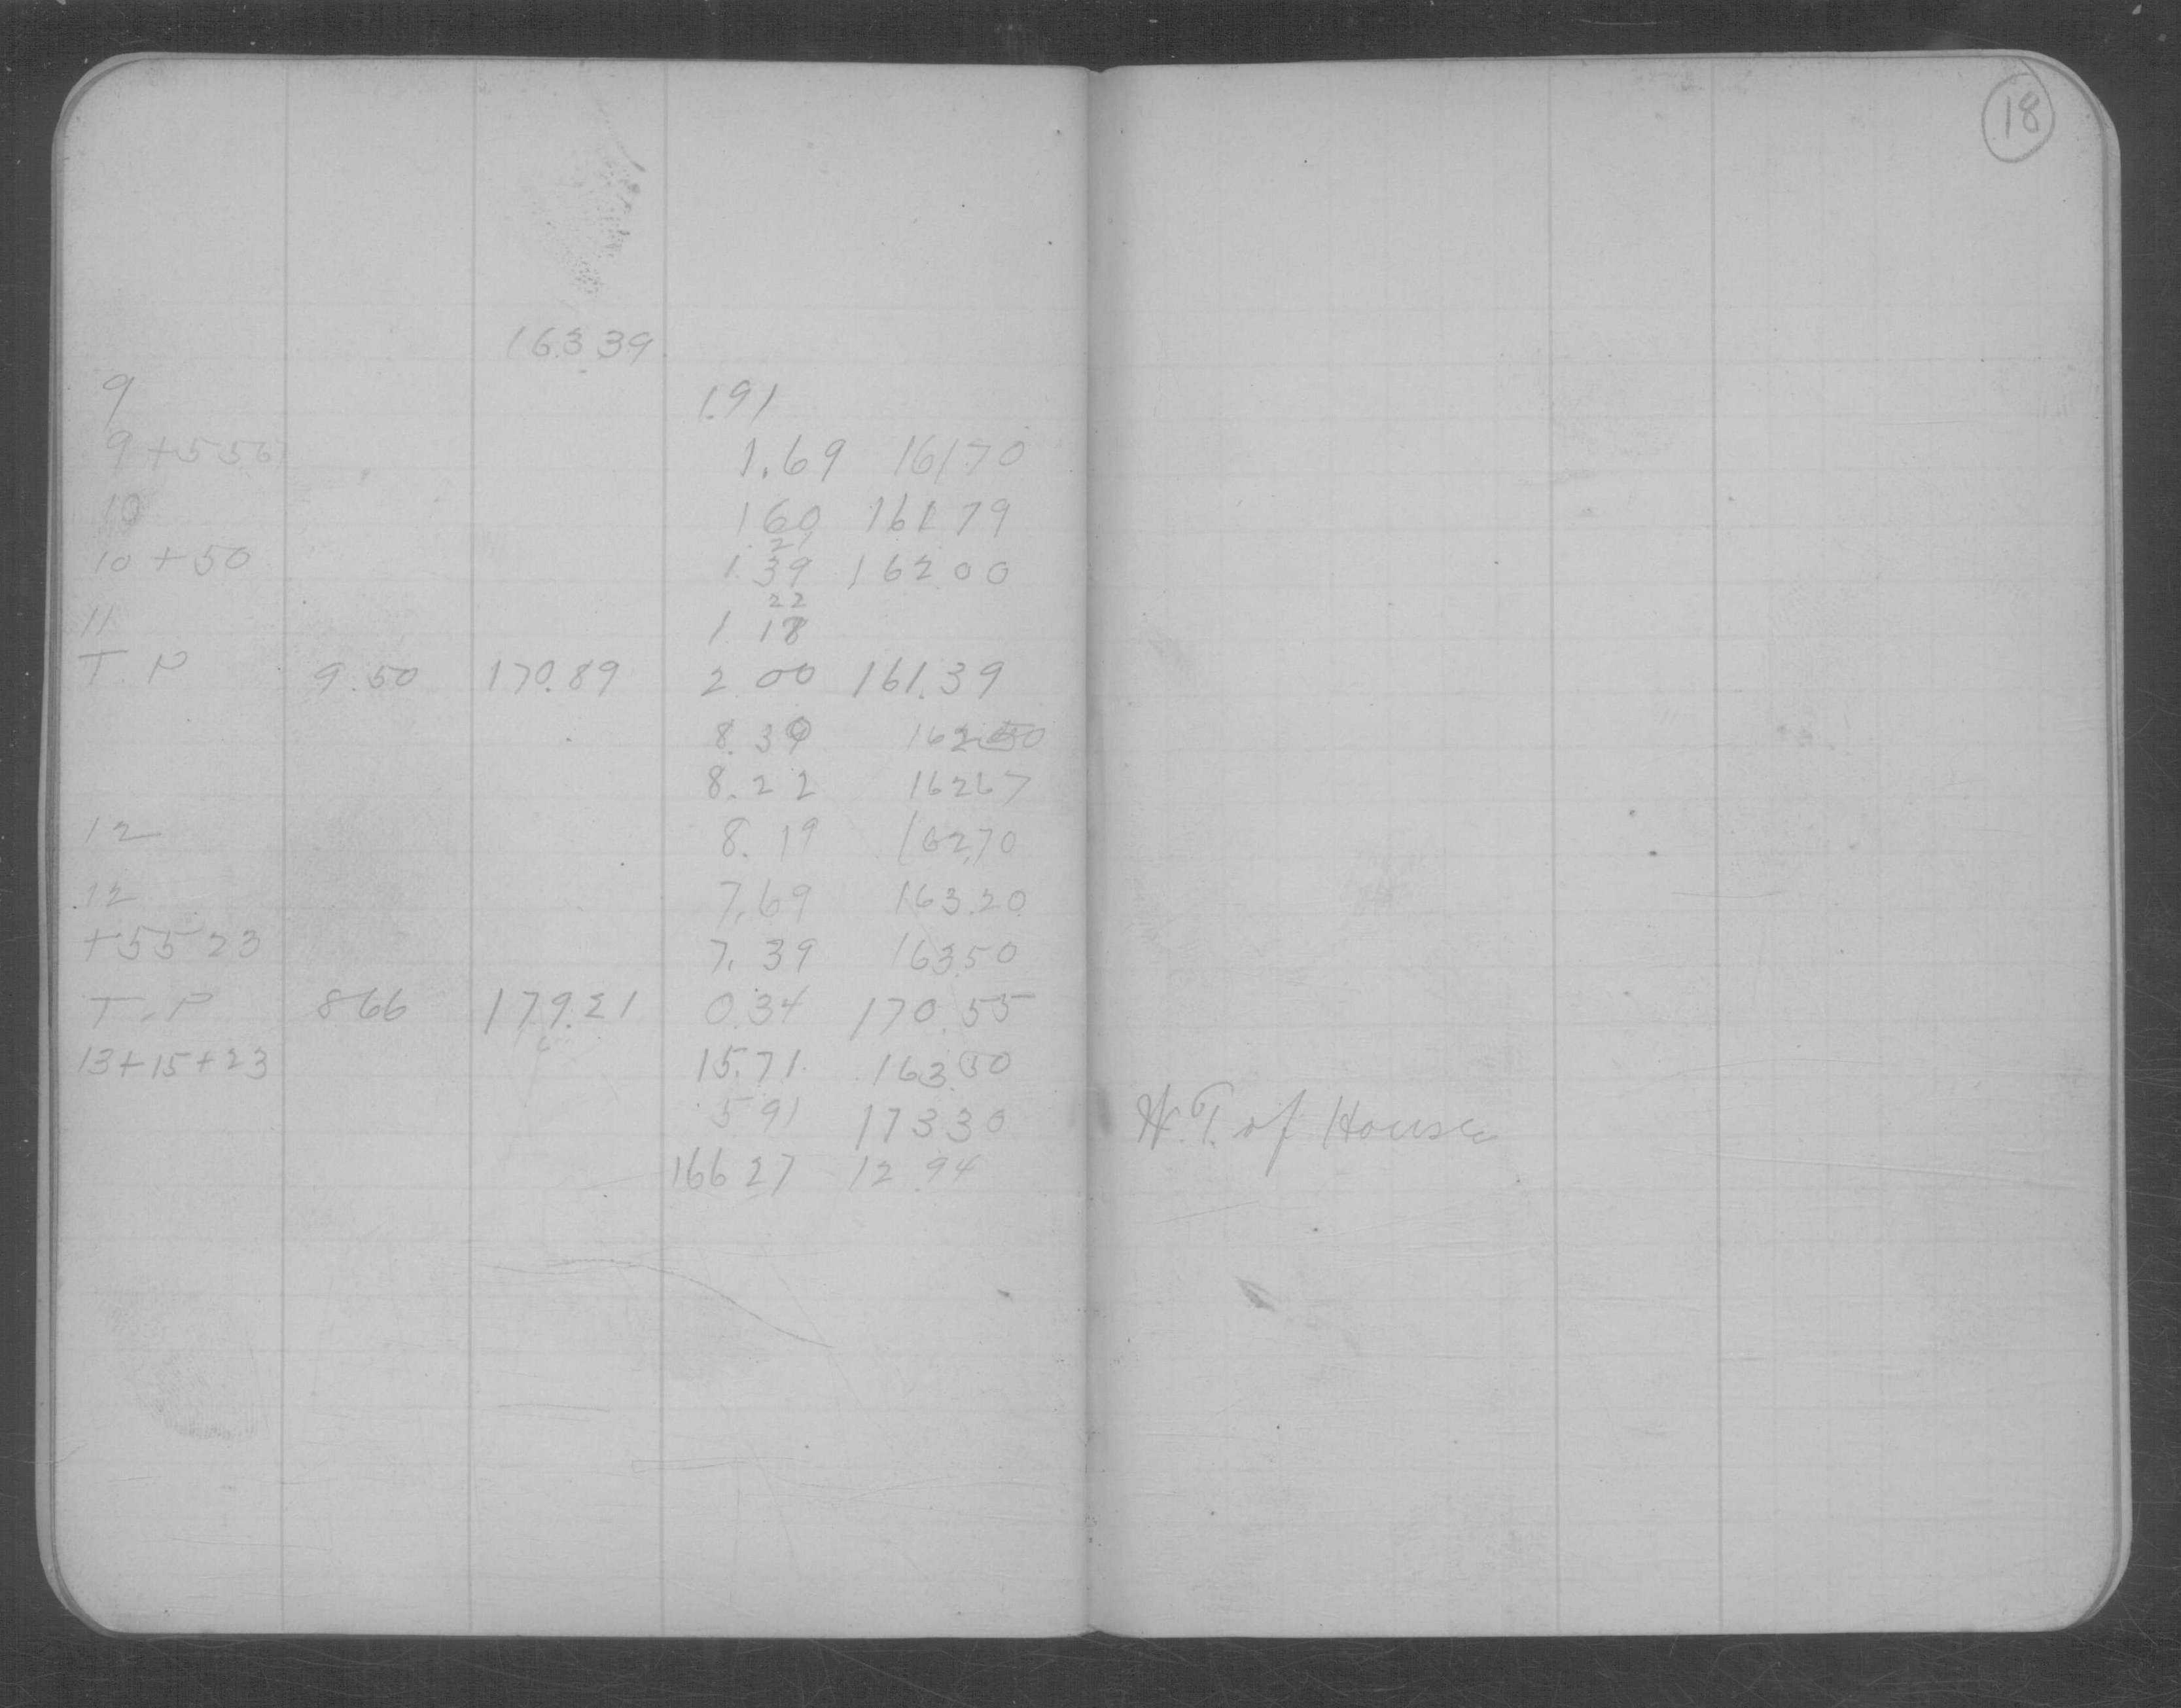 18
163 39
9 1.91
9 + 5 56 1.69 161 70
10 1 60 161 79
21
10 + 50 1. 39 162 00
22
11 1 18
T. P 9.50 170.89 2 00 161.39
8.39 162 50
8.22 162 67
12 8.19 162.70
12 7.69 163.20
+55 23 7.39 163.50
T.P 8 66 179.21 0.34 170.55
13+15+23 15.71 163.50
5 91 173 30 H.T. of House
166 27 12.94